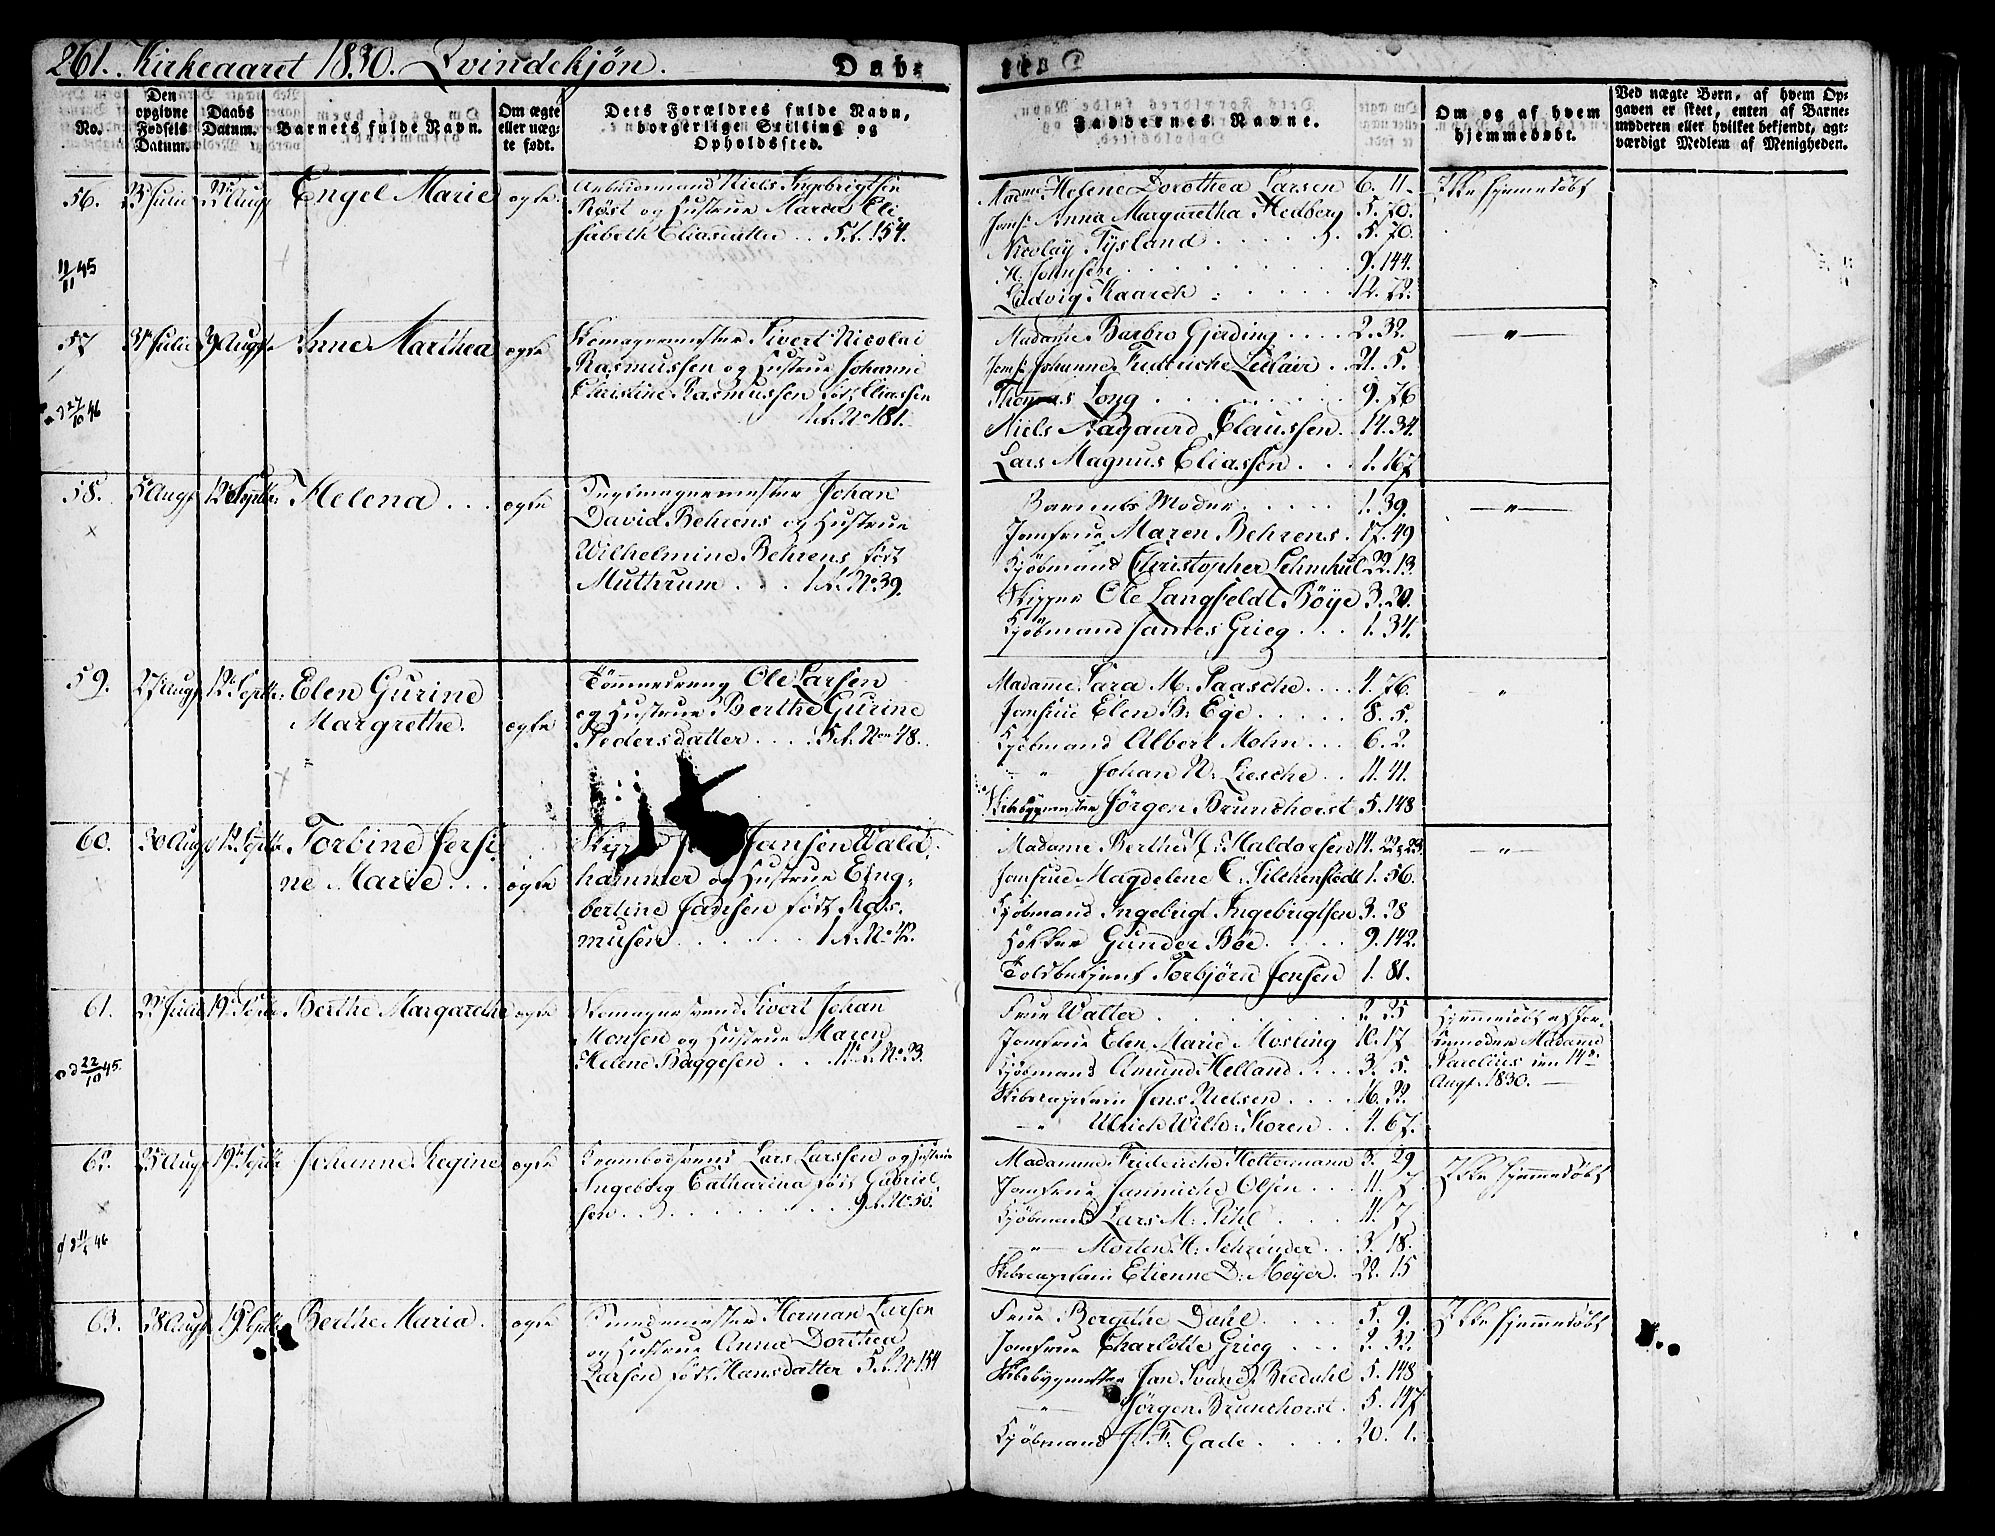 261. Kirkeaaret 1830. Qvindekjön. Døb-
te
No.
Den opgivne Fødsels Datum.
Daabs Datum.
Barnets fulde Navn.
Om ægte eller uæg-
te født.
Dets Forældres fulde Navn,
borgerlige Stilling og
Opholdssted.
Faddernes Navne.
Om og af hvem
hjemmedøbt.
Ved uægte Børn, af hvem Op-
gaven er skeet, enten af Barne-
moderen eller hvilket bekjendt, agt-
værdigt Medlem af Menigheden.
56. Julii Augt Engel Marie ægte
Arbeidsmand Niels Ingebrigtsen
Röst og Hustrue Maria Eli-
sabeth Eliasdatter .. 5t. 154.
11/11 45
Madme Helene Dorothea Larsen 6. 11
Jomf: Anna Margaretha Hedberg 5. 70.
Nicolay Tysland 5. 70.
H. Johnsen 9. 144.
Ludvig Kaarch 12. 72.
Ikke hjemmedøbt
57 Julii Augt Anne Marthea ægte
Skomagermester Sivert Nicolai
Rasmussen og Hustrue Johanne
Christine Rasmussen født Eliassen
No 181.
27/10 46
Madame Barbro Gjerding .... 2. 32.
Jomf: Johanne Fredriche Leclair .. 21. 5.
Thomas Long 9. 76
Niels Aagaard Claussen. 14. 34.
Lars Magnus Eliassen . . . 1. 167
— " —
58. 5 Augt 12 Septbr Helena . . . ægte
Johan
David Behrens og Hustrue
Wilhelmine Behrens født
Muthrum . . . 1 t. No 39.
Barnets Moder 1. 39.
Jomfrue Maren Behrens. 17. 49
Kjöbmand Christopher Lehmkul 22. 13.
Skipper Ole Langfeldt Böye 3. 20.
Kjöbmand James Grieg . . . 1. 34.
— " —
59. 27 Augt 12 Septbr: Elen Gurine
Margrethe. ægte
Tömmerdreng Ole Larsen
og Hustrue Berthe Gurine
Pedersdatter .... 5 t. No 48.
Madamme Sara M. Paasche.... 4. 76.
Jomfrue Elen B: Ege ..... 8. 5.
Kjöbmand Albert Mohn... 6. 2.
— " — Johan N: Liesche .. 11. 41.
Skibsbygmester Jörgen Brunchorst 5. 148
"
60. 30 Augt 12 Septbr Torbine Jersi-
ne Marie ... ægte
Skipper Jansen Wald-
hammer og Hustrue Eng-
bertine Jansen født Ras-
musen ...... 1 t. No 42.
Madame Berthe C: Haldorsen 14. 22 23.
Jomfrue Magdelene C. Silchenstedt 1. 56.
Kjöbmand Ingebrigt Ingebrigtsen 3. 28
Höker Gunder Böe. 9. 142.
Toldbetjent Torbjörn Jensen 1. 81.
— " —
61. Julii 19 Septbr Berthe Margarethe ægte
Skomagersvend Sivert Johan
Monsen og Hustrue Maren
Helene Baggesen . . . 11 t. No 23.
22/10 45.
Frue Walter 2. 25
Jomfrue Elen Marie Mosling 10. 17
Kjöbmand Amund Helland.... 3. 5.
Skibscaptain Jens Nielsen .... 16. 22.
— " — Ulrich Wilh: Koren .. 4. 67.
Hjemmedøbt af Jor-
demoder Madame
Parelius den 14de
Augt. 1830. —
62. Augt 19 Septbr Johanne Regine ægte
Lars Larsen og Hustrue
Ingeborg Catharina født Gabriel-
sen 9 t. No 50.
46
Madamme Frideriche Heltermann 3. 29
Jomfrue Janniche Olsen ... 11. 7.
Kjöbmand Lars M: Pihl 11. 7
— " — Morten H: Schreuder.. 3. 18.
Skibscaptain Etienne D: Meyer. 22. 15
Ikke hjemmedøbt
63. 28 Augt 19 Septbr Berthe Maria. ægte
Smedemester Herman Larsen
og Hustrue Anna Dorthea
Larsen født Hansdatter 5 t. No 154
Frue Bergithe Dahl. . . . 5. 9.
Jomfrue Charlotte Grieg . . . 2. 32.
Skibsbygmester Jan Svan d. Bredahl 5. 148
— " — Jörgen Brunchorst. 5. 147
Kjöbmand J: F: Gade . . . . 20. 1.
Ikke hjemmedøbt